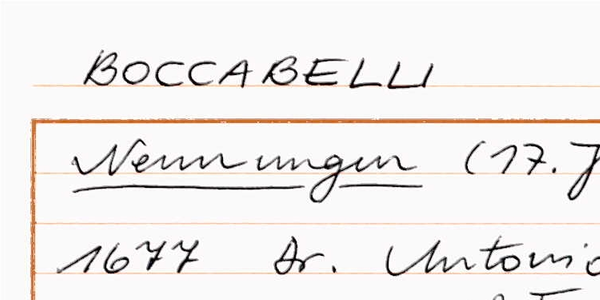 BOCCABELLI
Nennungen (17. J
1677 Dr. Antonio